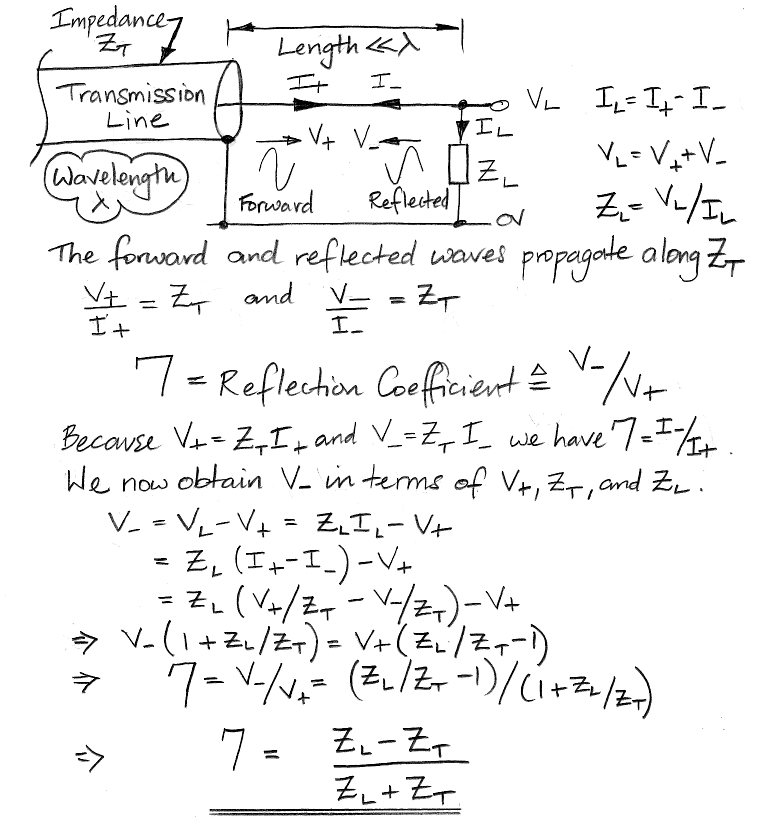 Impedance
Z_T
Length ≪ λ
Transmission
Line
I+ I-
V_L
I_L = I+ - I-
I_L
V+ V-
V_L = V+ + V-
Z_L
Wavelength
λ
Forward
Reflected
0V
Z_L = V_L/I_L
The forward and reflected waves propagate along Z_T
V+/I+ = Z_T and V-/I- = Z_T
7 = Reflection Coefficient ≜ V-/V+
Because V+ = Z_T I+ and V- = Z_T I- we have 7 = I-/I+.
We now obtain V- in terms of V+, Z_T, and Z_L.
V- = V_L - V+ = Z_L I_L - V+
= Z_L (I+ - I-) - V+
= Z_L (V+/Z_T - V-/Z_T) - V+
⇒ V-(1 + Z_L/Z_T) = V+(Z_L/Z_T - 1)
⇒ 7 = V-/V+ = (Z_L/Z_T - 1)/(1 + Z_L/Z_T)
⇒ 7 = (Z_L - Z_T)/(Z_L + Z_T)